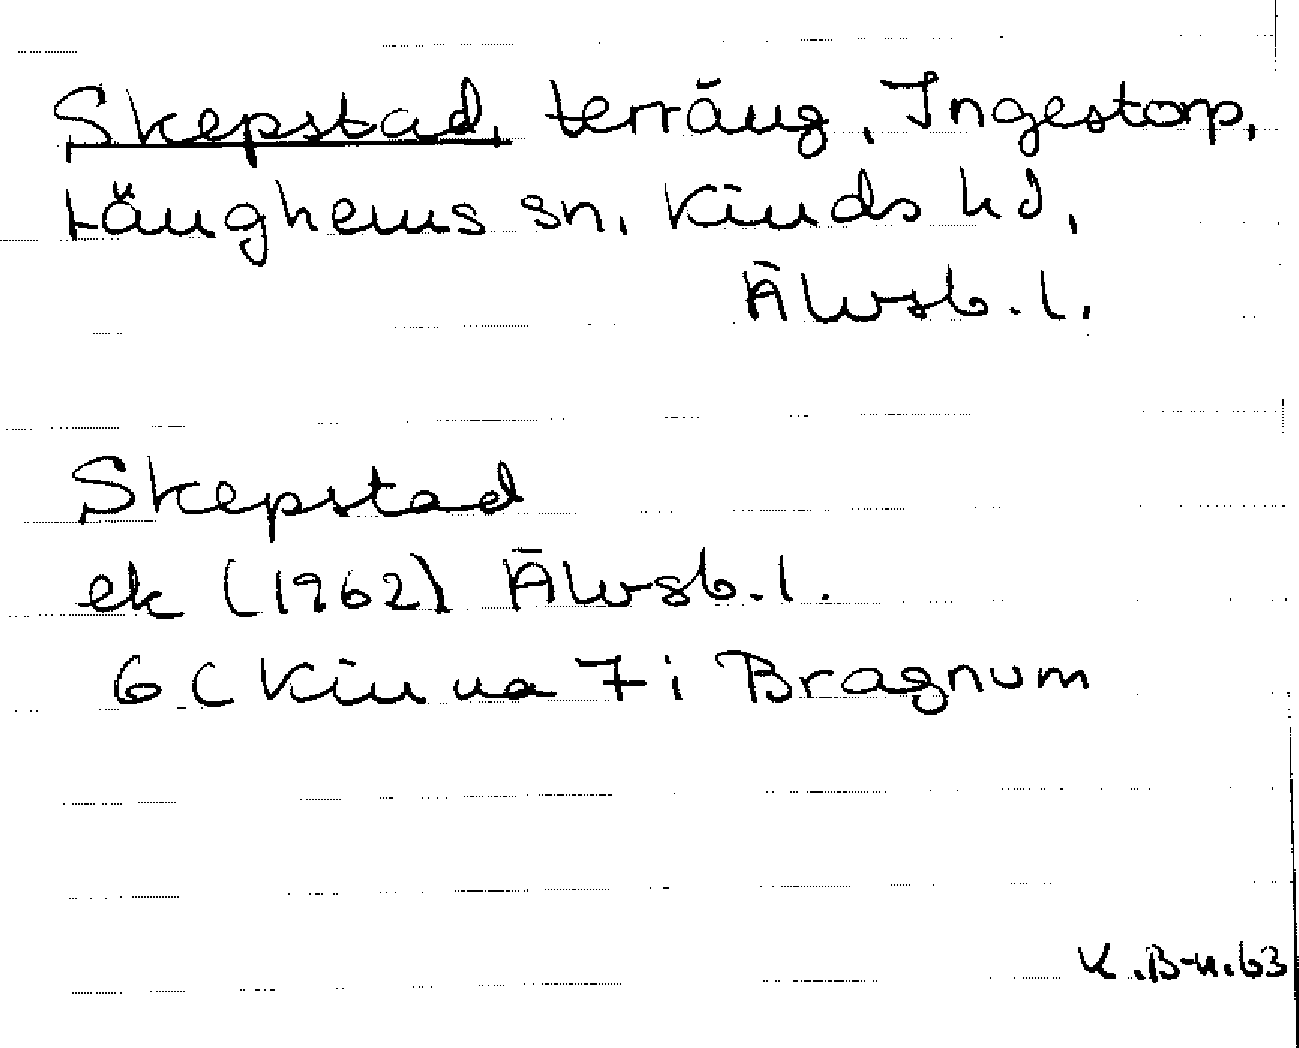 Skepstad, terräng, Ingestorp,
Länghems sn, Kinds hd,
Älvsb. l.
Skepstad
ek (1962) Älvsb. l.
6 C Kinna 7 i Bragnum
K.B-n.63